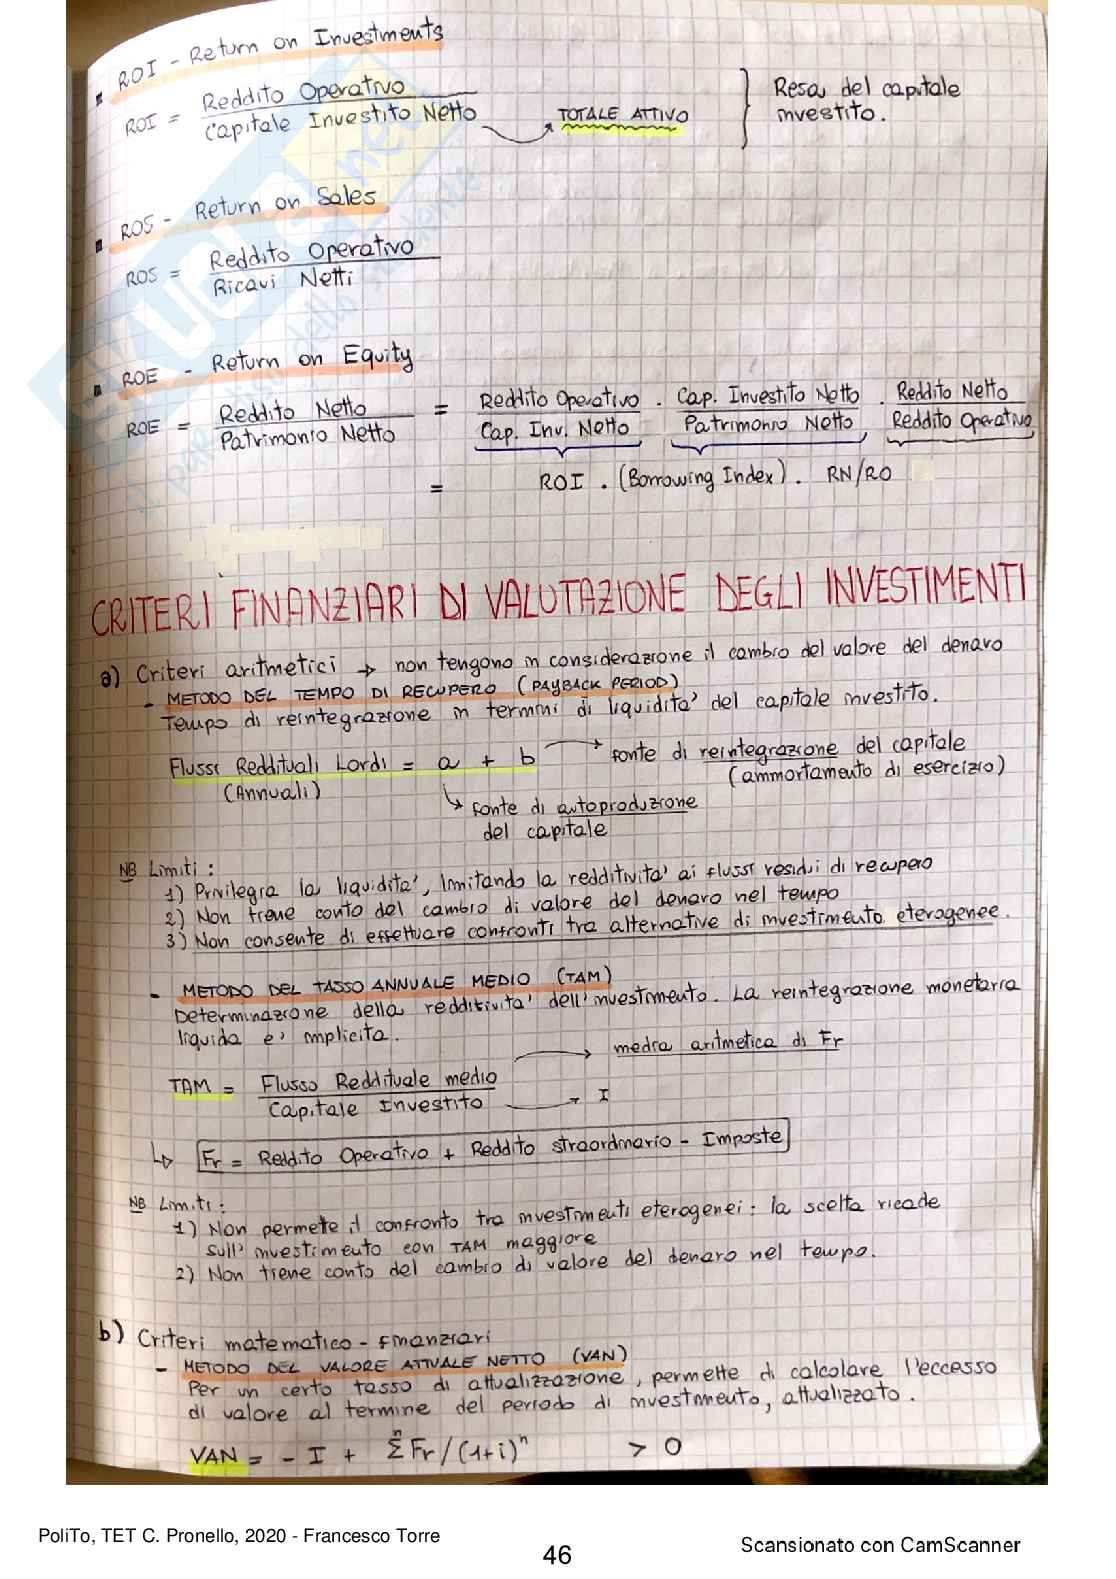 ROI - Return on Investments
ROI = Reddito Operativo / Capitale Investito Netto → TOTALE ATTIVO } Resa del capitale investito.
ROS - Return on Sales
ROS = Reddito Operativo / Ricavi Netti
ROE - Return on Equity
ROE = Reddito Netto / Patrimonio Netto = Reddito Operativo / Cap. Inv. Netto . Cap. Investito Netto / Patrimonio Netto . Reddito Netto / Reddito Operativo
= ROI . (Borrowing Index) . RN/RO
CRITERI FINANZIARI DI VALUTAZIONE DEGLI INVESTIMENTI
a) Criteri aritmetici → non tengono in considerazione il cambio del valore del denaro
- METODO DEL TEMPO DI RECUPERO (PAYBACK PERIOD)
Tempo di reintegrazione in termini di liquidita' del capitale investito.
Flussi Reddituali Lordi = a + b → fonte di reintegrazione del capitale
(Annuali) (ammortamento di esercizio)
↳ fonte di autoproduzione
del capitale
NB Limiti:
1) Privilegia la liquidita', limitando la redditivita' ai flussi residui di recupero
2) Non tiene conto del cambio di valore del denaro nel tempo
3) Non consente di effettuare confronti tra alternative di investimento eterogenee.
- METODO DEL TASSO ANNUALE MEDIO (TAM)
Determinazione della redditivita' dell'investimento. La reintegrazione monetaria
liquida e' implicita.
TAM = Flusso Reddituale medio / Capitale Investito
→ media aritmetica di Fr
→ I
↳ Fr = Reddito Operativo + Reddito straordinario - Imposte
NB Limiti:
1) Non permette il confronto tra investimenti eterogenei: la scelta ricade
sull'investimento con TAM maggiore
2) Non tiene conto del cambio di valore del denaro nel tempo.
b) Criteri matematico - finanziari
- METODO DEL VALORE ATTUALE NETTO (VAN)
Per un certo tasso di attualizzazione, permette di calcolare l'eccesso
di valore al termine del periodo di investimento, attualizzato.
VAN = - I + Σⁿ Fr/(1+i)ⁿ > 0
PoliTo, TET C. Pronello, 2020 - Francesco Torre
46
Scansionato con CamScanner